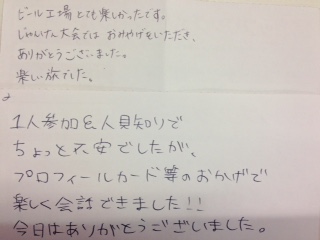 ビール工場とても楽しかったです。
じゃんけん大会では おみやげをいただき、
ありがとうございました。
楽しい旅でした。
1人参加&人見知りで
ちょっと不安でしたが、
プロフィールカード等のおかげで
楽しく会話できました!!
今日はありがとうございました。